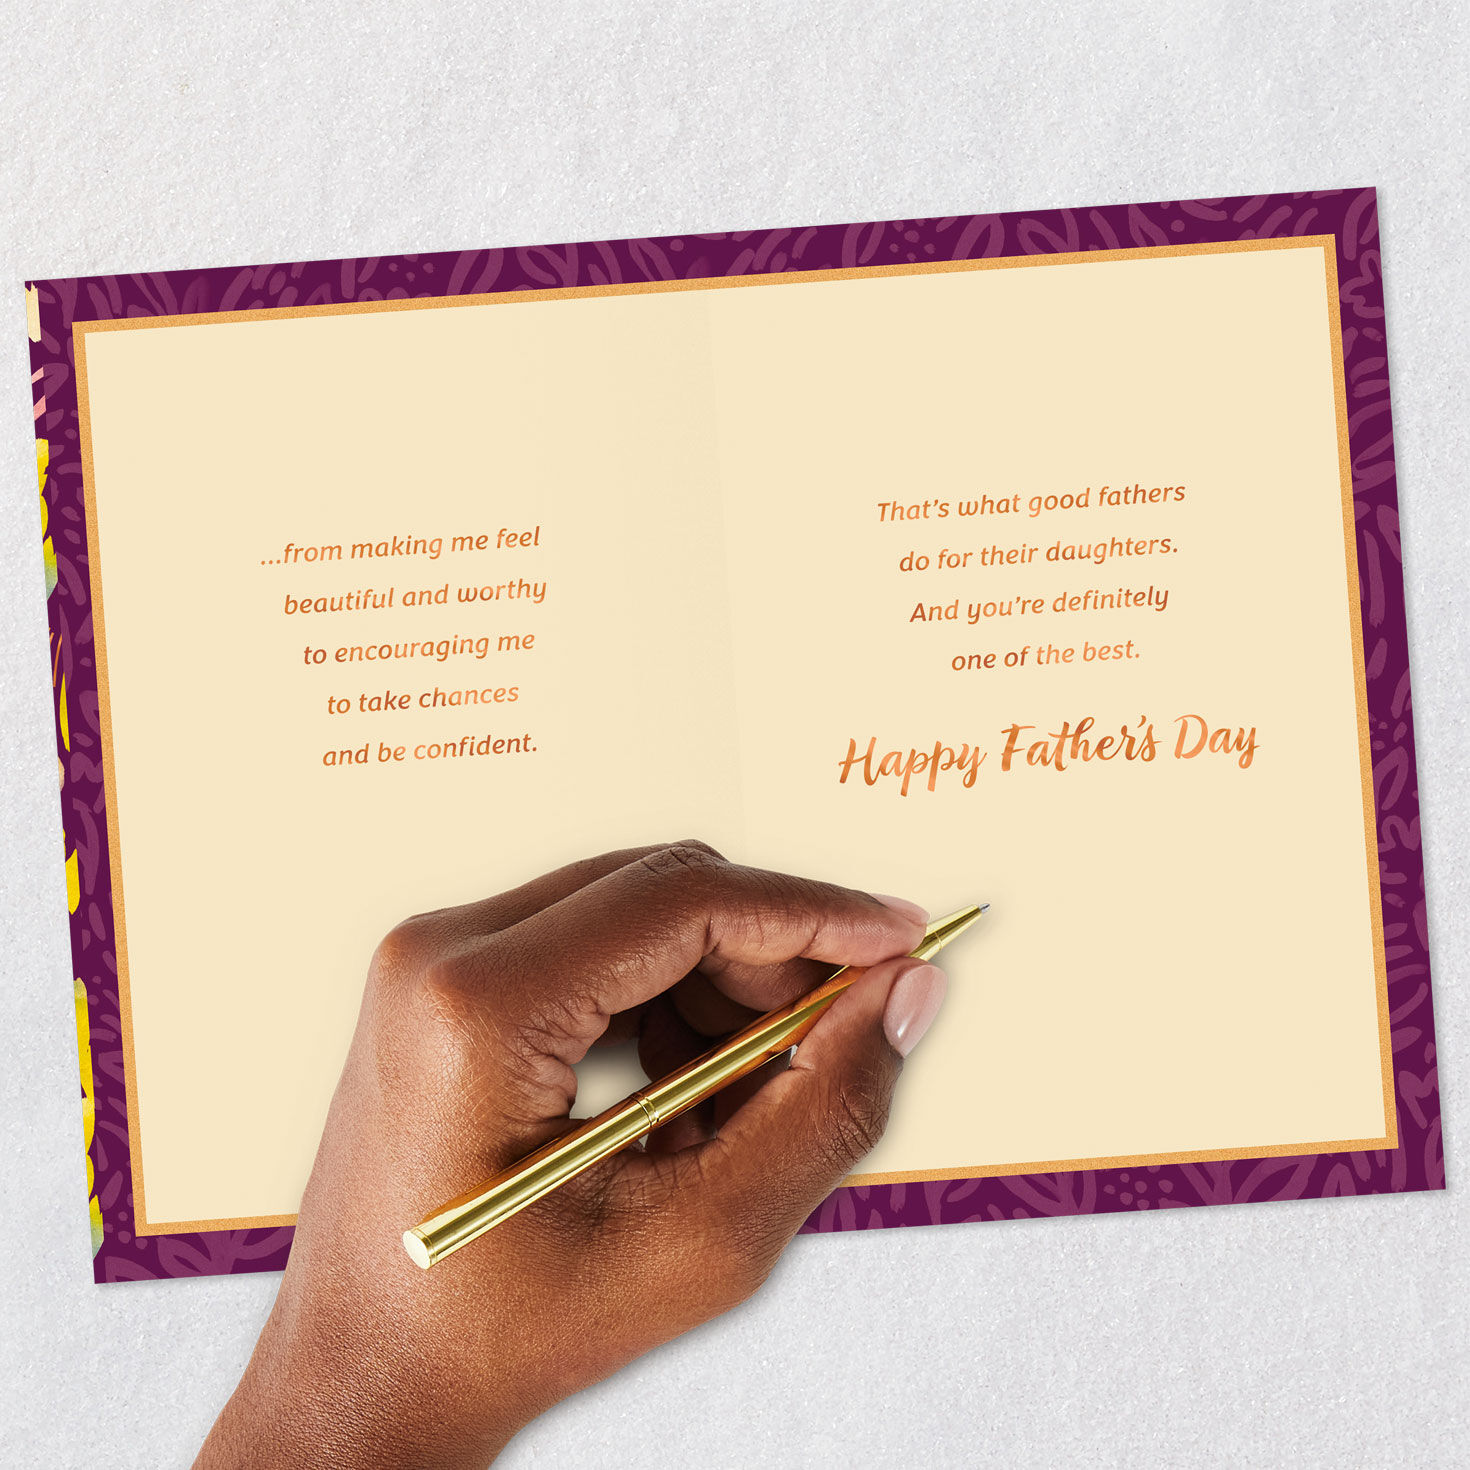 ...from making me feel
beautiful and worthy
to encouraging me
to take chances
and be confident.
That's what good fathers
do for their daughters.
And you're definitely
one of the best.
Happy Father's Day